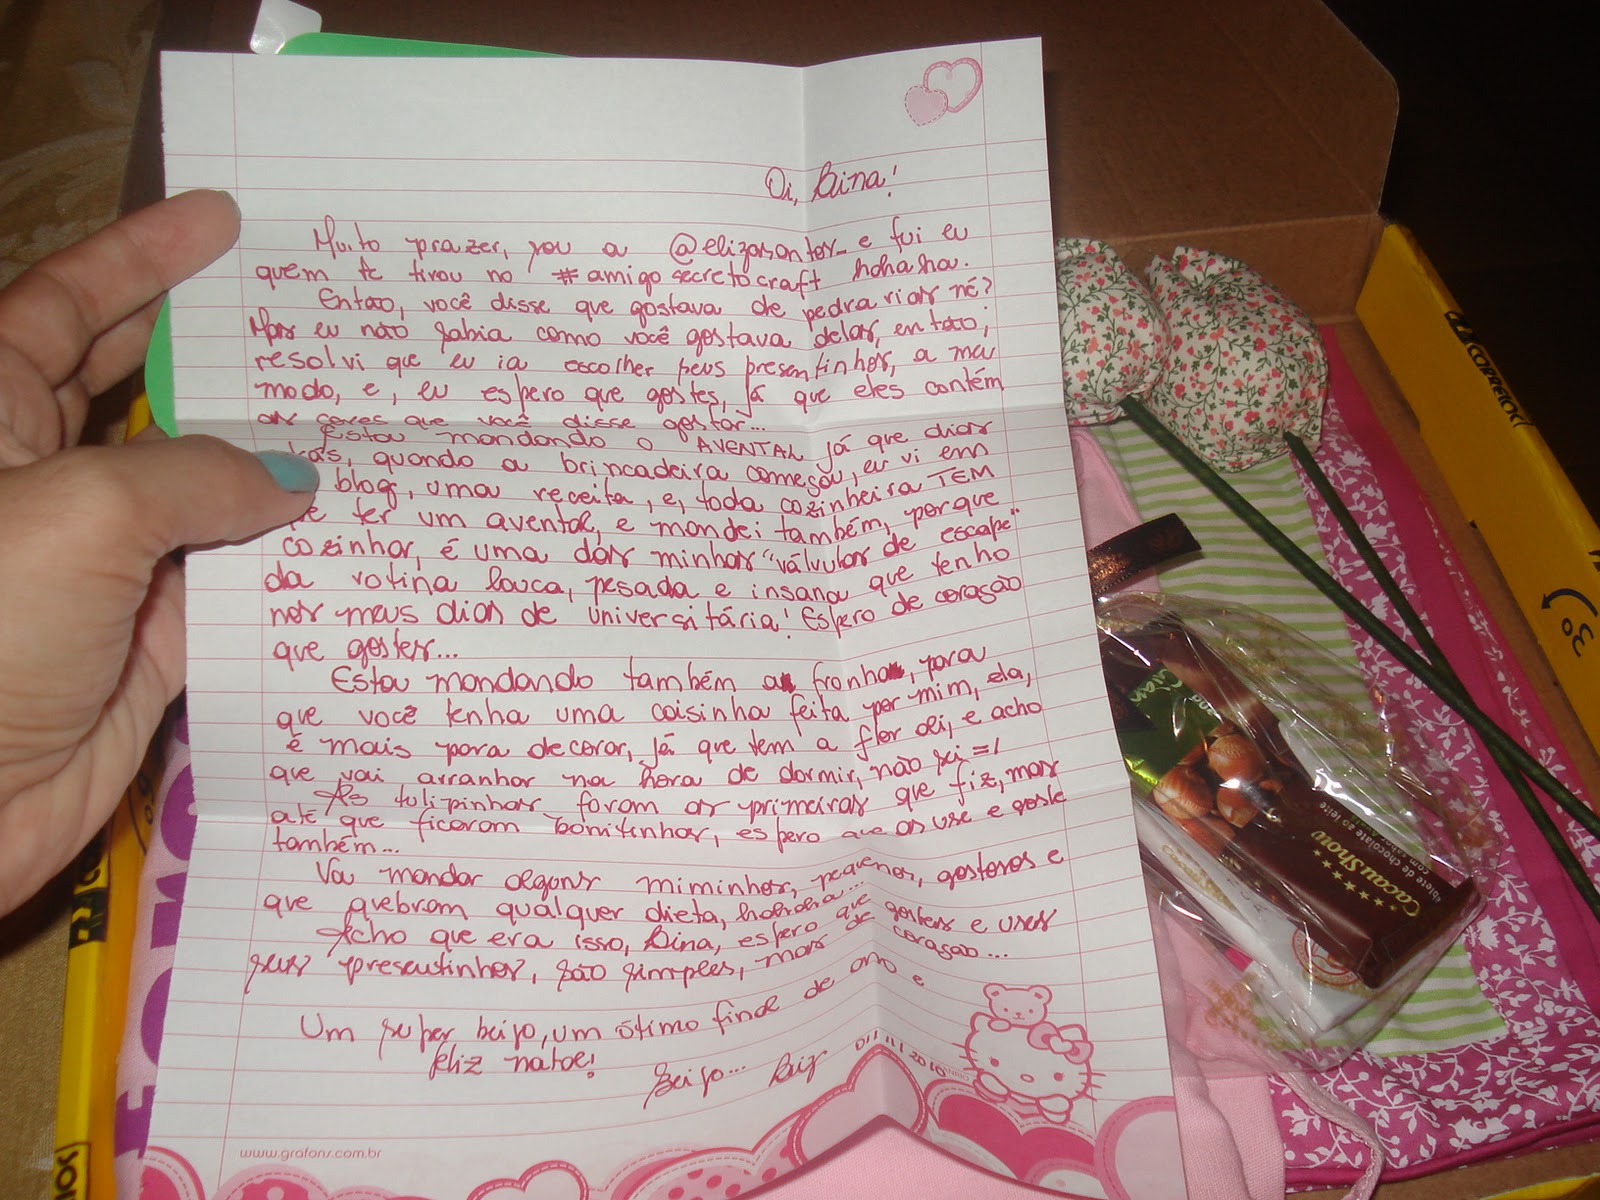 Oi, Bina!
Muito prazer, sou a @elizasantos_ e fui eu
quem te tirou no #amigosecretocraft hahaha.
Então, você disse que gostava de pedrarias né?
Mas eu não sabia como você gostava delas, então,
resolvi que eu ia escolher seus presentinhos, a meu
modo, e, eu espero que gostes, já que eles contém
as cores que você disse gostar...
Estou mandando o AVENTAL já que dias
quando a brincadeira começou, eu vi em
blog, uma receita, e, toda cozinheira TEM
ter um avental, e mandei também, porque
cozinhar, é uma das minhas "válvulas de escape"
da rotina louca, pesada e insana que tenho
nos meus dias de universitária! Espero de coração
que gostes...
Estou mandando também a fronha, para
que você tenha uma coisinha feita por mim, ela,
é mais para decorar, já que tem a flor ali, e acho
que vai arranhar na hora de dormir, não sei =/
As tulipinhas foram as primeiras que fiz, mas
até que ficaram bonitinhas, espero que as use e goste
também...
Vou mandar alguns miminhos, pequenos, gostosos e
que quebram qualquer dieta, hahaha...
Acho que era isso, Bina, espero que gostes e uses
seus presentinhos, são simples, mas de coração...
Um super beijo, um ótimo final de ano e
feliz natal!
Beijo... Liz
01/11/2010
www.grafons.com.br
CORREIOS
30
Cacau Show
ablete de chocolate ao leite